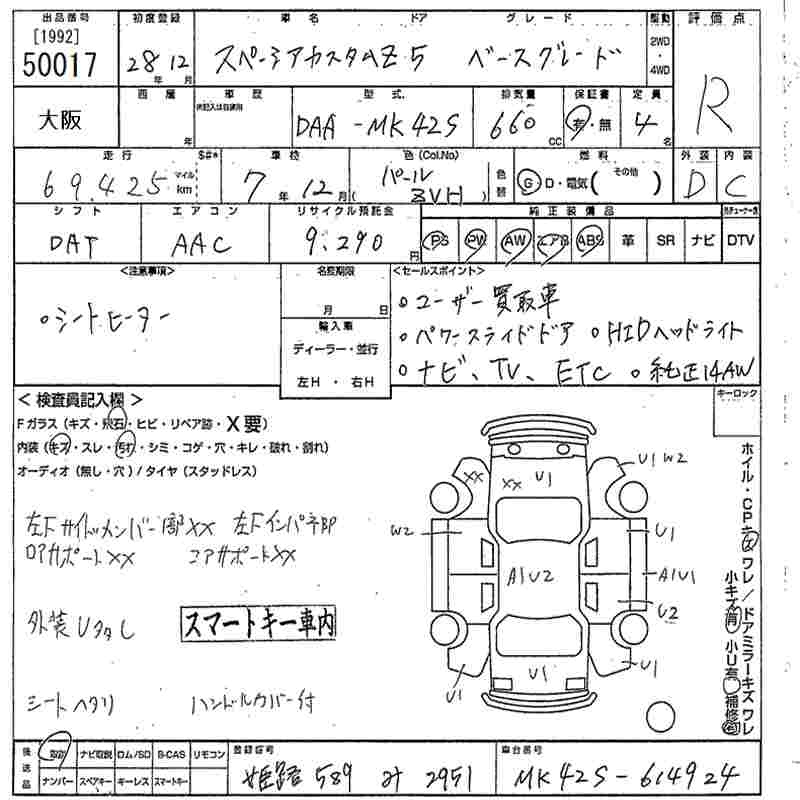 出品番号 初度登録 車名 ドア グレード 駆動 評価点
[1992]
50017 28年12月 スペーシアカスタムZ 5 ベースグレード 2WD・4WD R
大阪 西暦 年 車歴 型式 DAA-MK42S 排気量 660cc 保証書 有・無 定員 4名
走行 69,425 マイル km S#* 車検 7年12月 色(Col.No) パール ( ZVH ) 色替 燃料 G・D・電気( その他 ) 外装 D 内装 C
シフト エアコン リサイクル預託金 純正装備品
DAT AAC 9,290円 PS PW AW エアB ABS 革 SR ナビ DTV
<注意事項> 名変期限 <セールスポイント>
・シートヒーター 月 日 ・ユーザー買取車
輸入車 ・パワースライドドア ・HIDヘッドライト
ディーラー・並行 ・ナビ、TV、ETC ・純正14AW
左H・右H
<検査員記入欄> キーロック
Fガラス (キズ・飛石・ヒビ・リペア跡・X要)
内装 (キズ・スレ・汚れ・シミ・コゲ・穴・キレ・破れ・割れ)
オーディオ (無し・穴) / タイヤ (スタッドレス)
XX XX U1 U1 W2
左Fサイドメンバー部XX 左Fインパネ部
W2 U1
コアサポートXX
A1U2 A1U1
U2
外装Uタタし スマートキー車内
U1 U1 U1
シートヘタリ ハンドルカバー付
ホイル・CPキズ ワレ/ドアミラーキズ ワレ
小キズ有 小U有 補修有
後送品 ナビ取説 ロム/SD B-CAS リモコン 登録番号 車台番号
ナンバー スペアキー キーレス スマートキー 姫路 589 み 2951 MK42S-614924